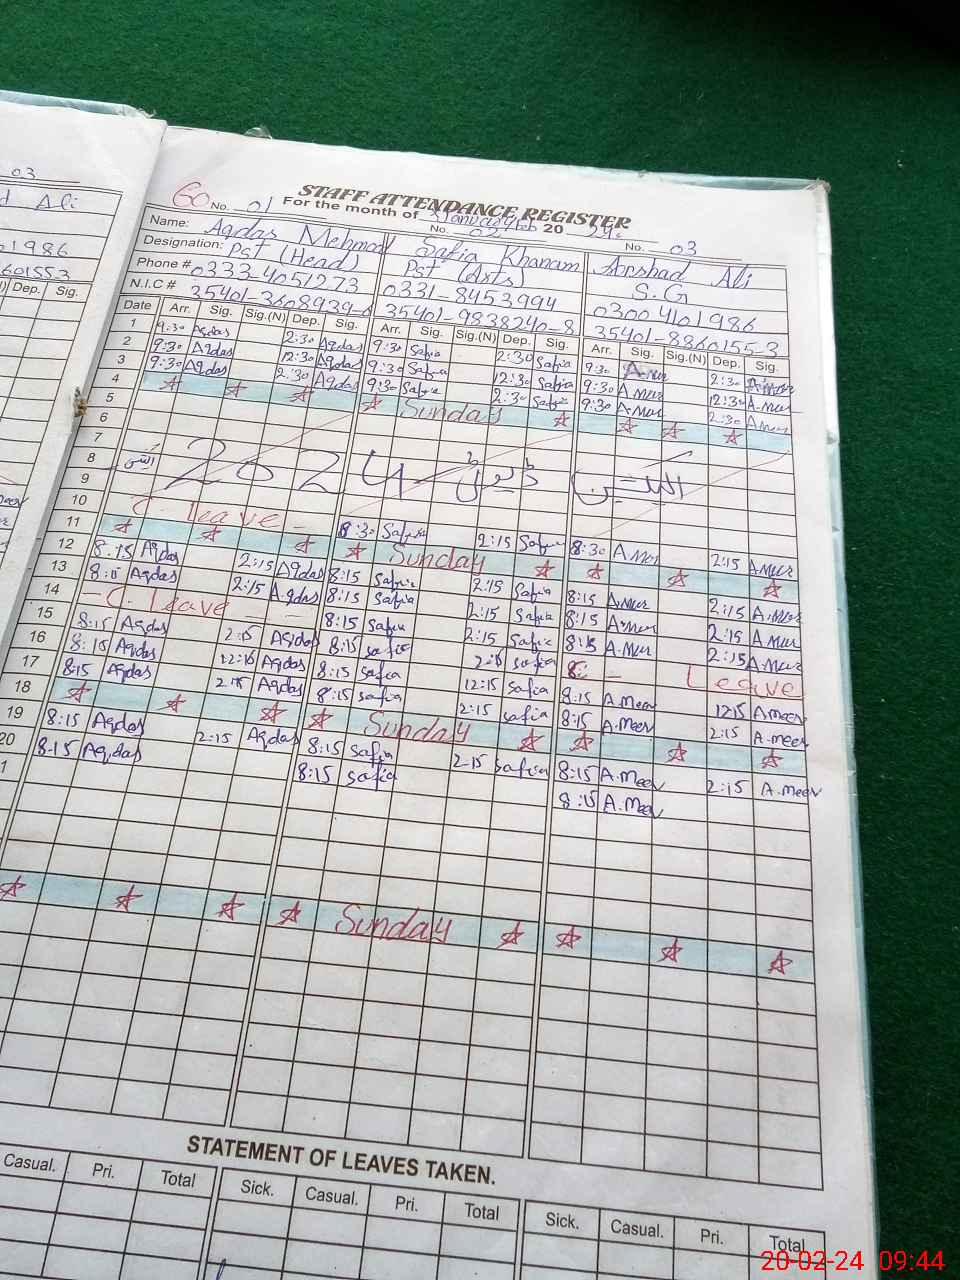 03
Ali
STAFF ATTENDANCE REGISTER
60 For the month of 20 24
No. 01 No. 02 No. 03
Name: Aqdas Mehmood Safia Khanam Arshad Ali
Designation: Pst (Head) Pst (Arts) S.G
Phone # 0333-4051273 0331-8453994 03004101986
N.I.C # 35401-3608939-6 35401-9838240-8 35401-8860155-3
Dep. Sig. Date Arr. Sig. Sig.(N) Dep. Sig. Arr. Sig. Sig.(N) Dep. Sig. Arr. Sig. Sig.(N) Dep. Sig.
1 9:30 Aqdas 2:30 Aqdas 9:30 Safia 2:30 Safia 9:30 2:30
2 9:30 Aqdas 12:30 Aqdas 9:30 Safia 12:30 Safia 9:30 12:30
3 9:30 Aqdas 2:30 Aqdas 9:30 Safia 2:30 Safia 9:30 2:30
4 Sunday
5
6
7
8 2024
9
10 C. leave 8:30 Safia 2:15 Safia 8:30 2:15
11 Sunday
12 8:15 Aqdas 2:15 Aqdas 8:15 Safia 2:15 Safia 8:15 2:15
13 8:15 Aqdas 2:15 Aqdas 8:15 Safia 2:15 Safia 8:15 2:15
14 C. leave 8:15 Safia 2:15 Safia 8:15 2:15
15 8:15 Aqdas 2:15 Aqdas 8:15 Safia 2:15 Safia Leave
16 8:15 Aqdas 12:15 Aqdas 8:15 Safia 12:15 Safia 8:15 A.meer 12:15 A.meer
17 8:15 Aqdas 2:15 Aqdas 8:15 Safia 2:15 Safia 8:15 A.meer 2:15 A.meer
18 Sunday
19 8:15 Aqdas 2:15 Aqdas 8:15 Safia 2:15 Safia 8:15 A.meer 2:15 A.meer
20 8:15 Aqdas 8:15 Safia 8:15 A.meer
1
Sunday
STATEMENT OF LEAVES TAKEN.
Casual. Pri. Total Sick. Casual. Pri. Total Sick. Casual. Pri. Total
20-02-24 09:44